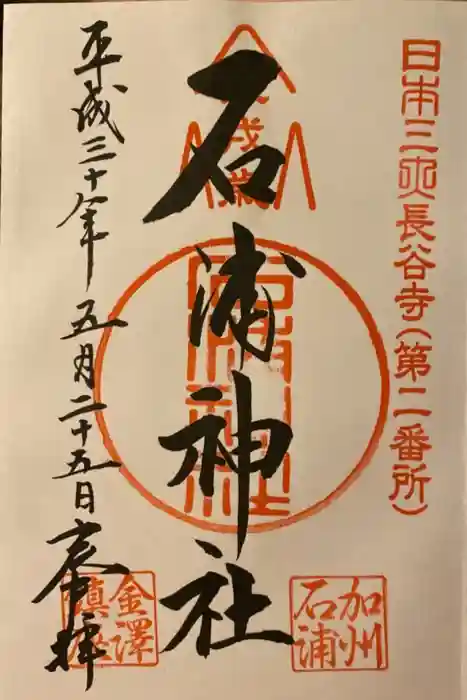 日本三大長谷寺（第二番所）
石浦神社
平成三十年五月二十五日奉拝
加州
石浦
金澤